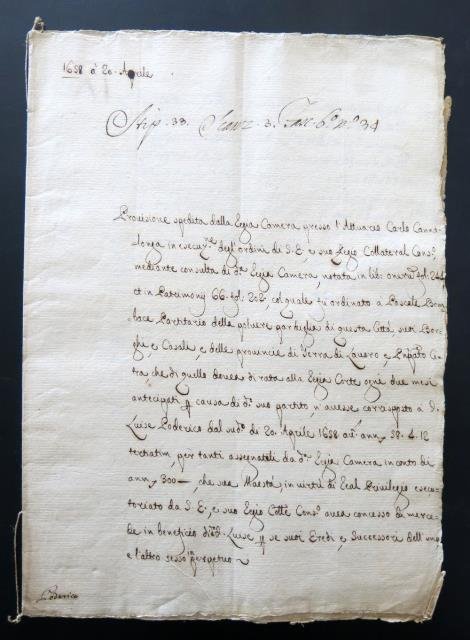 1698 à 20. Aprile
Stip. 33. Scanz. 3. Fasc. 6.º n.º 34
Provisione spedita dalla Regia Camera presso l'Attuario Carlo Canna-
longa in esecuz.ne degl'ordini di S.E. e suo Regio Collateral Cons.º
mediante consulta di d.ª Regia Camera, notata in lib:
et in Patrimony 66. fol. 202, col quale fu ordinato a Pascale Bom-
bace Partitario della polvere di questa Città, suoi Bor-
ghi, e Casali, e delle provincie di Terra di Lavoro, e Pnpato Ci-
tra che di quello doveva di rata alla Regia Corte ogni due mesi
anticipati p causa di d.º suo partito n'avesse corrisposto a D.
Luise Loderico dal sud.º dì 20. Aprile 1698 ann. 38. 4. 12
tertiatim, per tanti assegnatili da d.ª Regia Camera in conto di
ann. 300 —, che sua Maestà, in virtù di Real Privilegio eseco-
toriato da S.E. e suo Regio Coll.e Cons.º avea concesso di merce-
de in beneficio di d. Luise p se suoi Eredi e, Successori dell'uno
e l'altro sesso in perpetuo ~
Loderico